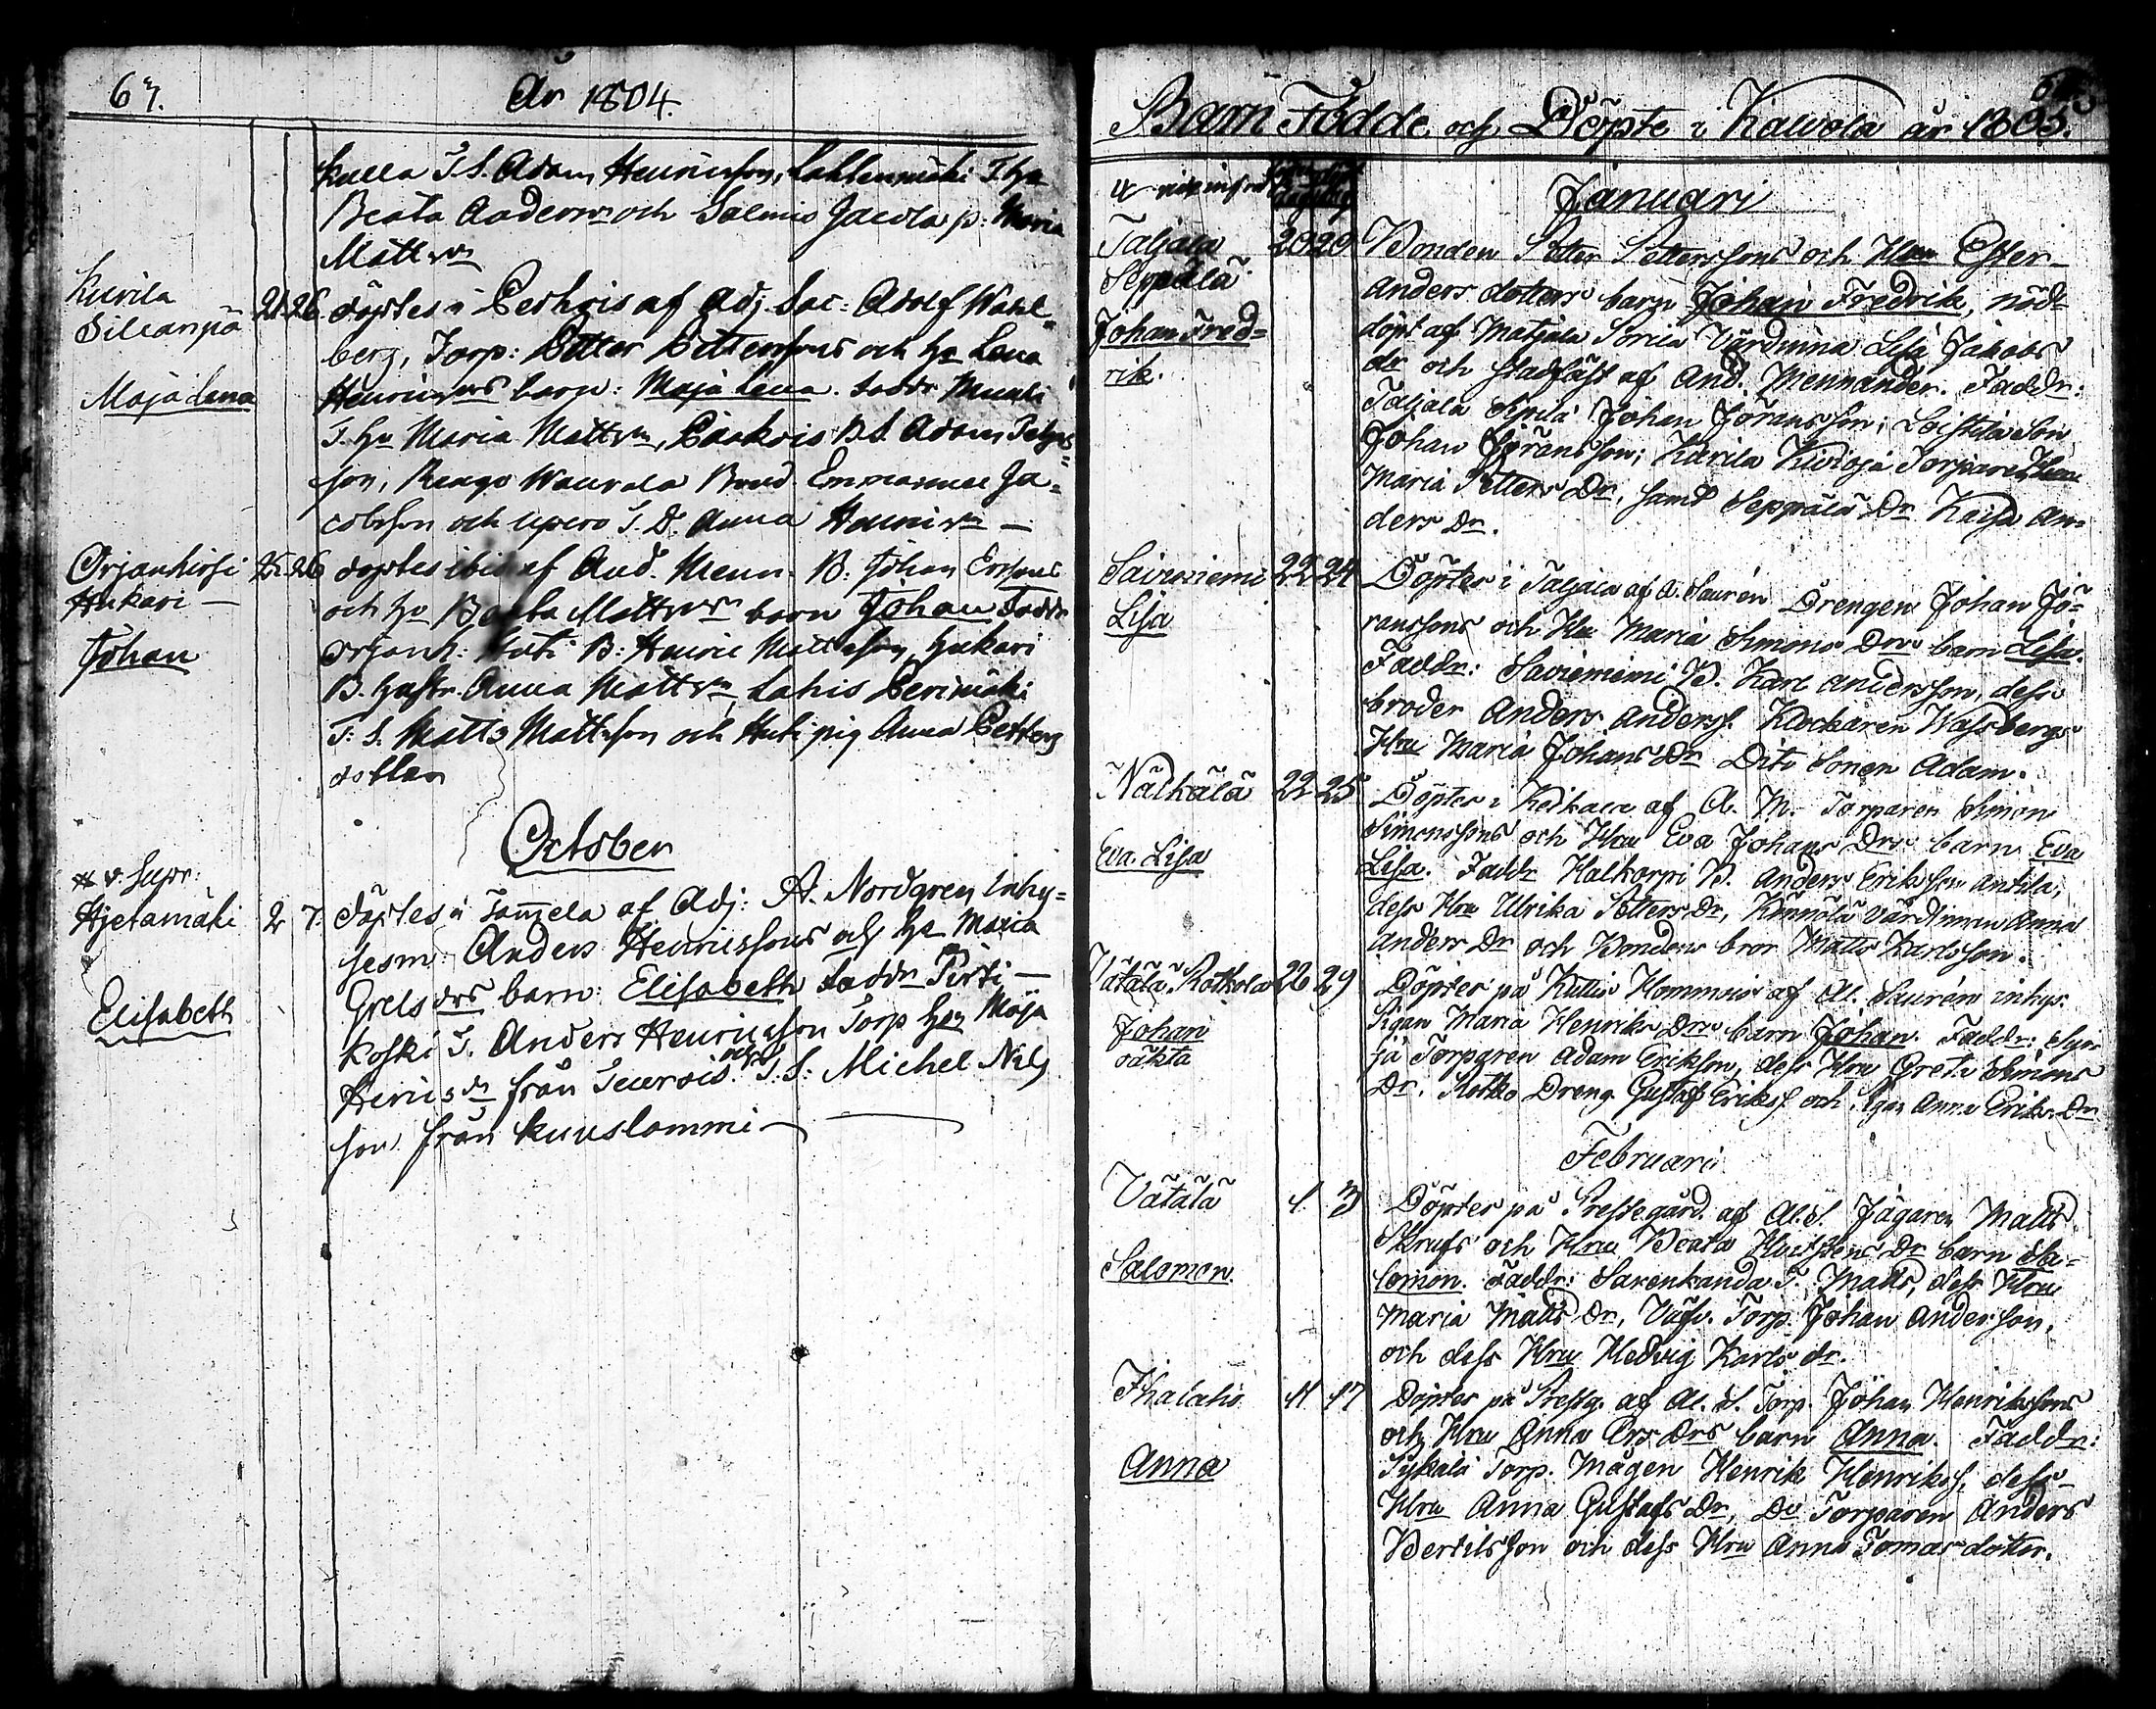 67.
År 1804.
kulla T.S. Adam Henricsson, Lahtenmäki T. hu
Beata Andersdr och Salmis Jacola p: Maria
Mattsdr
Kurila
Sillanpä
Maja Lena
21. 26 döptes i Perhois af Adj. Sac: Adolf Wahl=
berg, Torp: Petter Pettersons och hu Lena
Henricsdrs barn: Maja Lena. Faddr
T. hu Maria Mattsdr, B.S. Adam
son, Rengo Bond. Emmanuel Ja=
cobsson och T.D. Anna Henricsdr —
Orjanhirsi
Hukari —
Johan
25. 26 döptes ibid af And. Menn. B: Johan Ersons
och hu Beata Mattsdrs barn Johan Faddr
Orjanh: Huti B: Henric Mattsson, Hukari
B. Hustr. Anna Mattsdr, Lahis Perimäki
T: S. Matts Mattsson och Huti pig Anna Petters
dotter
October
Hjetamäki
Elisabeth
2 7. döptes i Tammela af Adj: A. Nordgren Inhy=
sesm: Anders Henricssons och hu Maria
Grelsdrs barn: Elisabeth Faddr Pirti—
koski T. Anders Henricsson Torp hu Maja
Henricsdr från och T:S: Michel Nils
son från kuuslammi
Barn Födde och Döpte i Kalvola år 1805.
Januari
Taljala
Seppälä
Johan Fred=
rik.
20 20 Bonden Petter Petterssons och Hu Ester
Anders dotters barn Johan Fredrik, nöd
döpt af Matjala Sorila Värdinna Lisa Jakobs
dr och stadfäst af And. Mennander. Faddr:
Taljala Sipilä Johan Jöransson; Leistilä Son
Johan Jöransson; Kurila Kivioja Torpare Hu
Maria Petters Dr, samt Seppälä Dr Kaisa An=
ders Dr.
Saviniemi
Lisa
22 24 Döptes i Taljala af A. Saurén Drengen Johan Jö=
ranssons och Hu Maria Simons Drs barn Lisa.
Faddr: Saviniemi B. Karl Andersson, dess
broder Anders Anderss. Klockaren Wassbergs
Hru Maria Johans Dr Dito Sonen Adam.
Nälkälä
Eva Lisa
22 25 Döptes i Keikala af A. M. Torparen Simon
Simonssons och Hru Eva Johans Drs barn Eva
Lisa. Faddr Halkorpi B. Anders Eriksson Antila,
dess Hru Ulrika Petters Dr, Värdinnan Anna
Anders Dr och Bondens bror Matts Karlsson.
Vätälä Kotkola
Johan
oäkta
22 29 Döptes på Kutis Hommois af Al. Saurén inhys.
Pigan Maria Henriks Drs barn Johan. Faddr: Syr=
jä Torparen Adam Erikson, dess Hru Greta Simons
Dr. Kotko Dreng Gustaf Eriks. och Pigan Anna Eriks Dr
Februari
Vätälä
Salomon.
1. 3 Döptes på Prestegård. af Al. S. Jägaren Matts
Skrufs och Hru Beata Dr barn Sa=
lomon. Faddr: Savenkanda T. Matts, dess Hru
Maria Matts Dr, Torp. Johan Anderson,
och dess Hru Hedvig Karls dr.
Ihalahis
Anna
11 17 Döptes på Prestg. af Al. S. Torp. Johan Henrikssons
och Hru Anna Ers Drs barn Anna. Faddr:
Torp. Mågen Henrik Henrikss. dess
Hru Anna Gustafs Dr, Do Torparen Anders
Bertilsson och dess Hru Anna Tomas dotter.